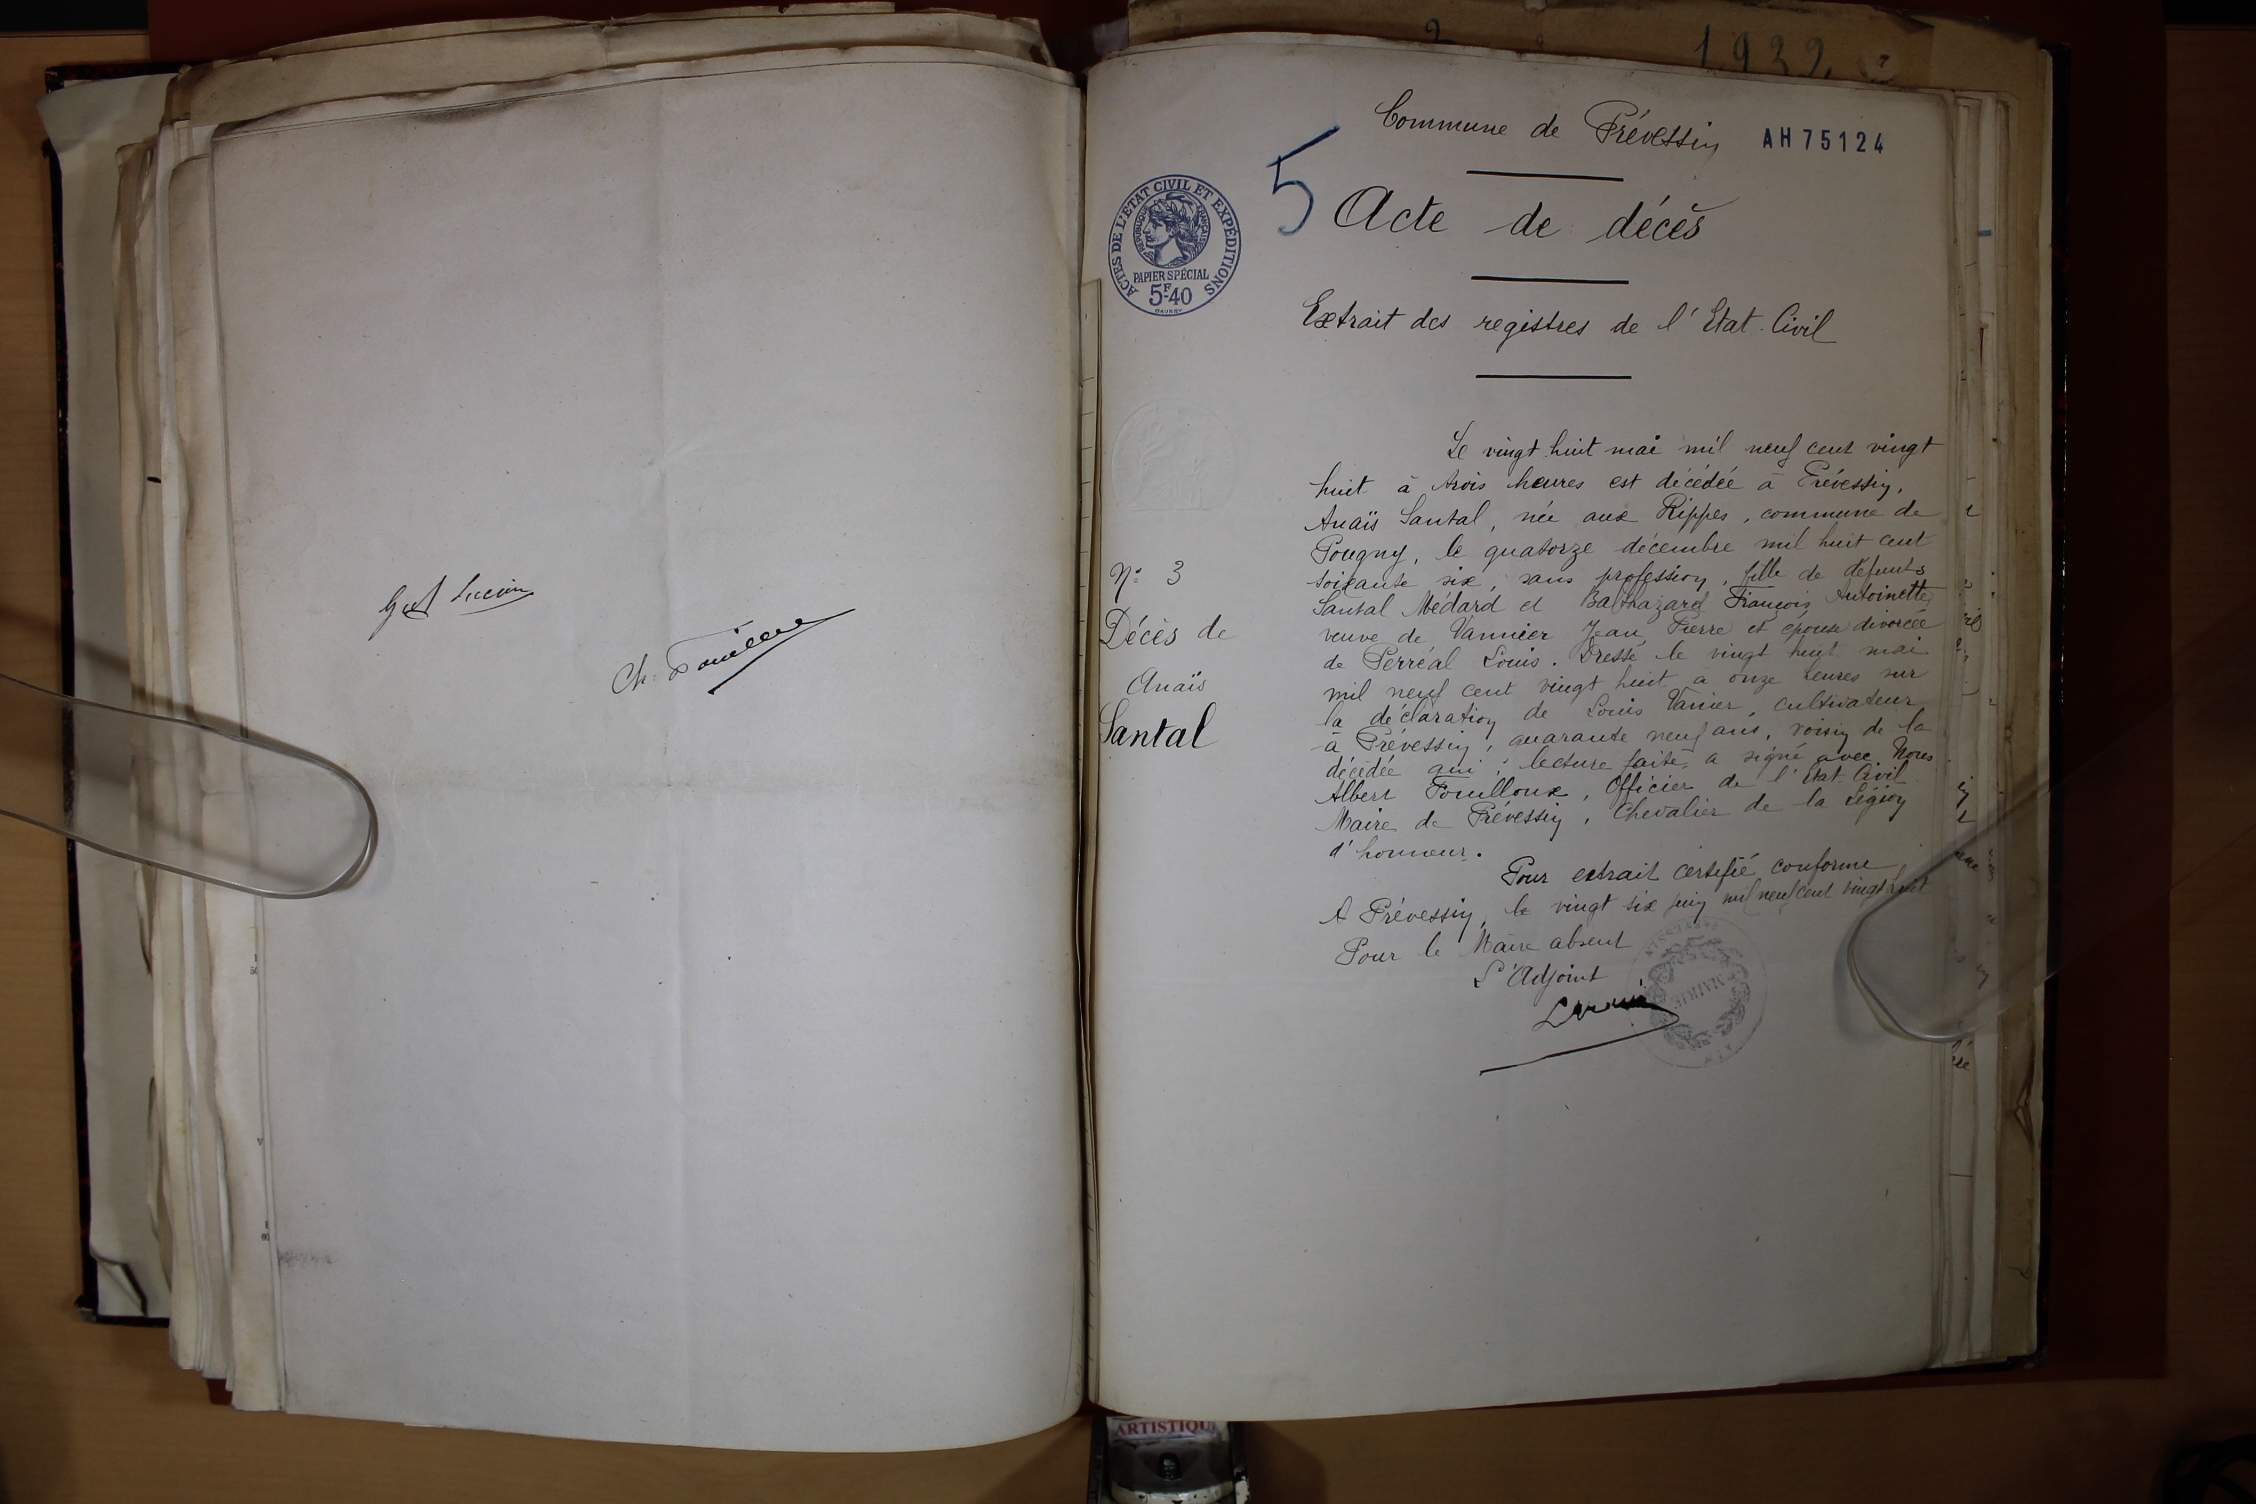 1932
Commune de Prévessin
AH 75124
5
ACTES DE L'ETAT CIVIL ET EXPÉDITIONS
REPUBLIQUE FRANÇAISE
PAPIER SPÉCIAL
5F40
Acte de décès
Extrait des registres de l'Etat Civil
Lucien
Ch.
N° 3
Décès de
Anaïs
Santal
Le vingt huit mai mil neuf cent vingt
huit à trois heures est décédée à Prévessin,
Anaïs Santal, née aux Rippes, commune de
Pougny, le quatorze décembre mil huit cent
soixante six, sans profession, fille de defunts
Santal Médard et Balthazard François Antoinette
veuve de Vannier Jean Pierre et epouse divorcée
de Perréal Louis. Dressé le vingt huit mai
mil neuf cent vingt huit à onze heures sur
la déclaration de Louis Vanier, cultivateur
à Prévessin, quarante neuf ans, voisin de la
décédée qui, lecture faite, a signé avec Nous
Albert Fouilloux, Officier de l'Etat Civil
Maire de Prévessin, Chevalier de la Légion
d'honneur.
Pour extrait certifié conforme
A Prévessin, le vingt six juin mil neuf cent vingt huit
Pour le Maire absent
L'Adjoint
MAIRIE
ARTISTIQU